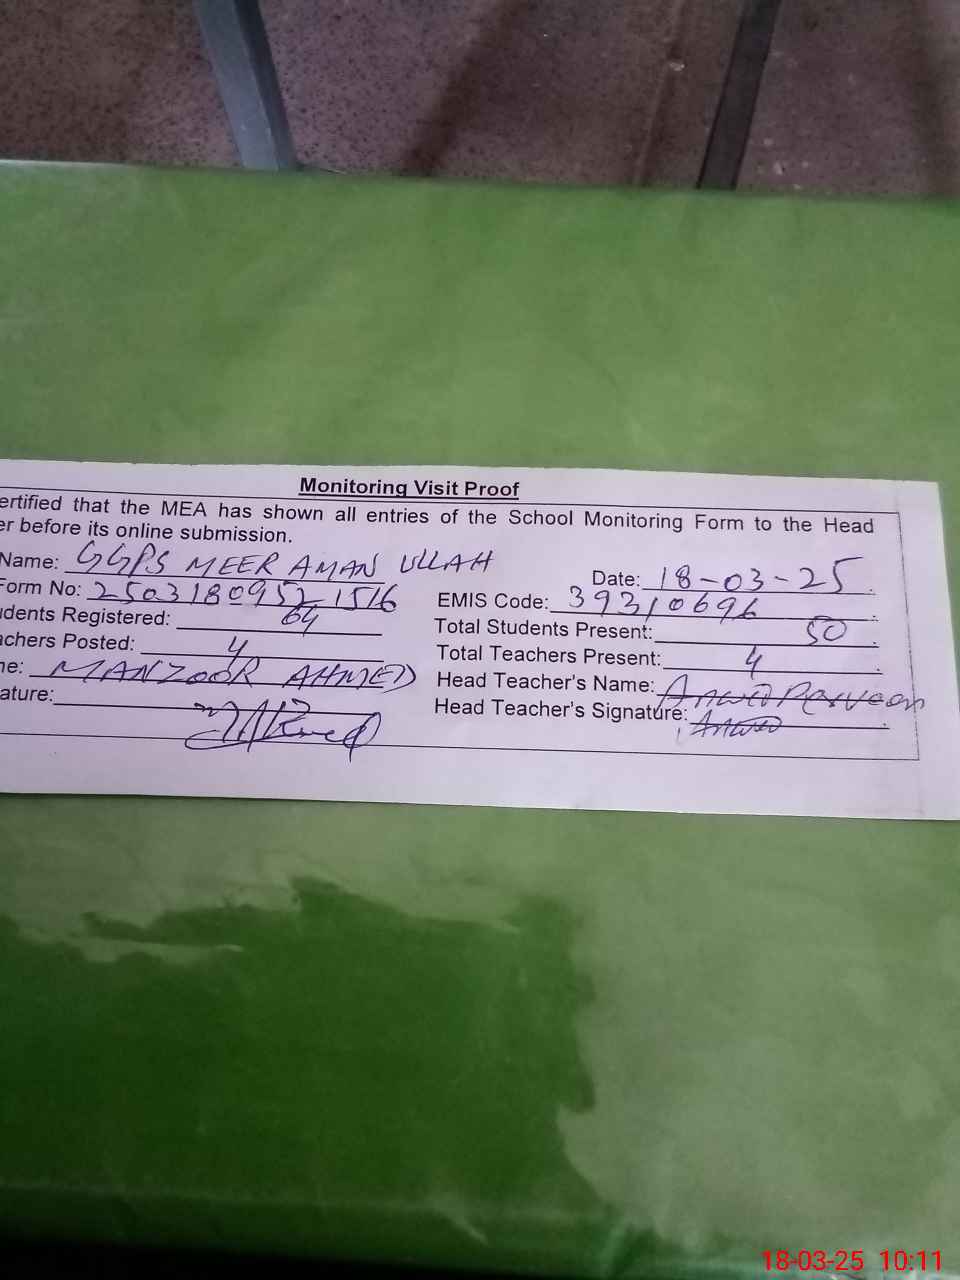 Monitoring Visit Proof
ertified that the MEA has shown all entries of the School Monitoring Form to the Head
er before its online submission.
Name: GGPS MEER AMAN ULLAH
Date: 18-03-25
Form No: 25031809521516
EMIS Code: 39310696
udents Registered: 64
Total Students Present: 50
achers Posted: 4
Total Teachers Present: 4
ne: MANZOOR AHMED
Head Teacher's Name: Anwar Parveen
ature:
Head Teacher's Signature: Anwar
18-03-25 10:11